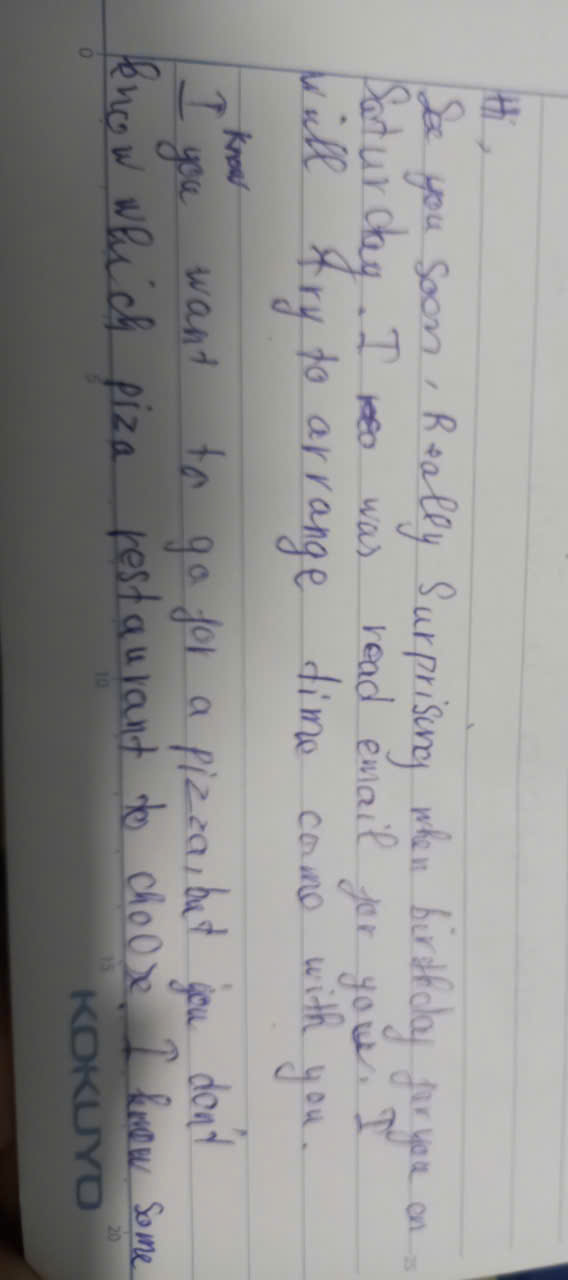 Hi,
See you soon, Really Surprising when birthday for you on
Saturday. I was read email for your. I
will try to arrange time come with you.
know
I you want to go for a pizza, but you don't
know which piza restaurant to choox. I know some
0
5
10
15
20
25
KOKUYO